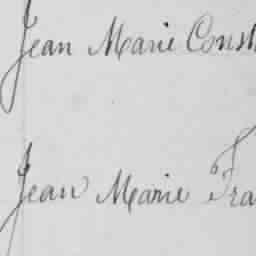 Jean Marie Const
Jean Marie Fra